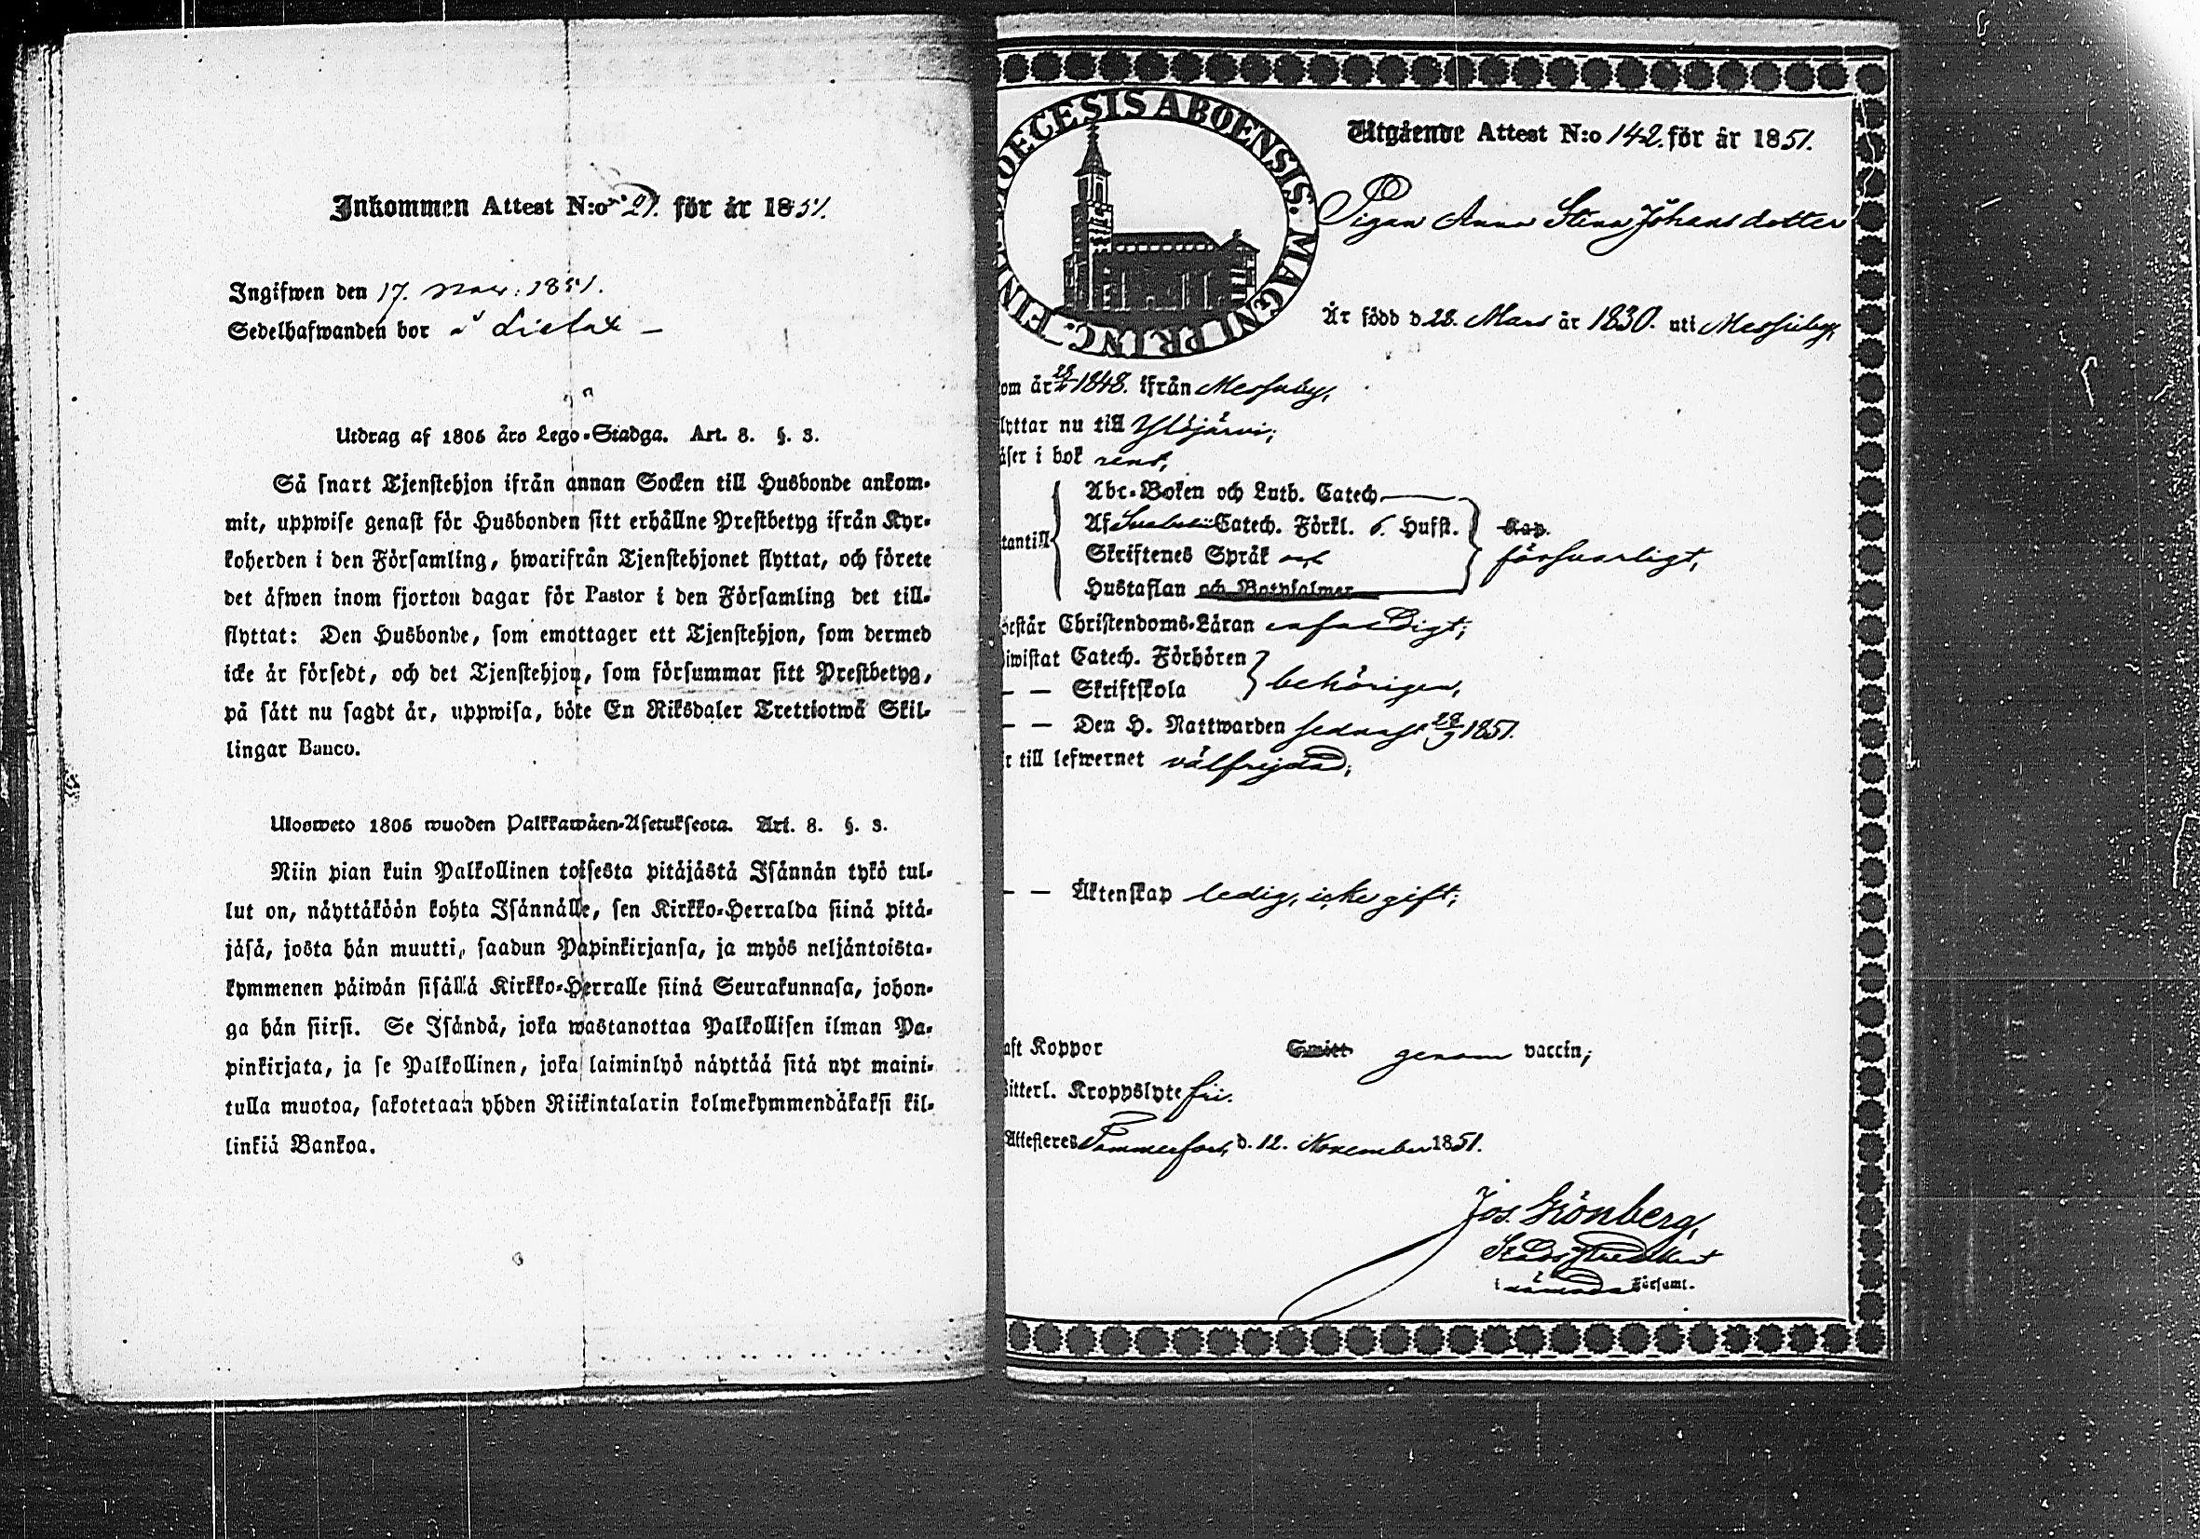 Inkommen Attest N:o 21. för år 1851.
Ingifwen den 17. Nov: 1851.
Sedelhafwanden bor å Lielax –
Utdrag af 1805 års Lego-Stadga. Art. 8. §. 3.
Så snart Tjenstehjon ifrån annan Socken till Husbonde ankom-
mit, uppwise genast för Husbonden sitt erhållne Prestbetyg ifrån Kyr-
koherden i den Församling, hwarifrån Tjenstehjonet flyttat, och förete
det äfwen inom fjorton dagar för Pastor i den Församling det till-
flyttat: Den Husbonde, som emottager ett Tjenstehjon, som dermed
icke är försedt, och det Tjenstehjon, som försummar sitt Prestbetyg,
på sätt nu sagdt är, uppwisa, böte En Riksdaler Trettiotwå Skil-
lingar Banco.
Ulosweto 1805 wuoden Palkkawäen-Asetuksesta. Art. 8. §. 3.
Niin pian kuin Palkollinen toisesta pitäjästä Isännän tykö tul-
lut on, näyttäköön kohta Isännälle, sen Kirkko-Herralda siinä pitä-
jäsä, josta hän muutti, saadun Papinkirjansa, ja myös neljäntoista-
kymmenen päiwän sisällä Kirkko-Herralle siinä Seurakunnasa, johon-
ga hän siirsi. Se Isändä, joka wastanottaa Palkollisen ilman Pa-
pinkirjata, ja se Palkollinen, joka laiminlyö näyttää sitä nyt maini-
tulla muotoa, sakotetaan yhden Riikintalarin kolmekymmendäkaksi kil-
linkiä Bankoa.
DIOECESIS ABOENSIS. MAGNI PRINC. FINL.
Utgående Attest N:o 142. för år 1851.
Pigan Anna Stina Johansdotter
Är född d 28. Mars år 1830. uti Messuby,
om år 1848. ifrån Messuby,
lyttar nu till Ylöjärvi;
äser i bok rent,
Abc-Boken och Luth. Catech.
Af Svebelii Catech. Förkl. 6. Hufst. Kap.
tantill Skriftenes Språk och försvarligt,
Hustaflan och Botpsalmer
östår Christendoms-Läran enfaldigt;
iwistat Catech. Förhören
– – Skriftskola behörigen,
– – Den H. Nattwarden sednast 28/9 1851.
r till lefwernet välfrejdad;
– – Äktenskap ledig, icke gift;
aft Koppor genom vaccin;
itterl. Kroppslyte fri.
Attesteres Tammerfors, d. 12. November 1851.
Jos. Grönberg,
i Församl.